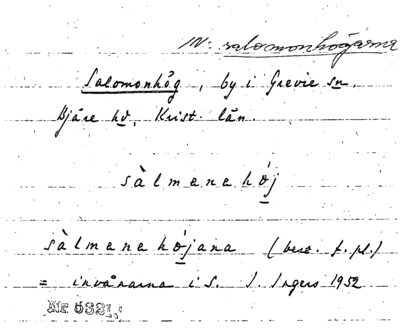 IN: salomonhögarna
Salomonhög, by i Grevie sn.
Bjäre hd, Krist. län.
sàlmanahój
sàlmanahójana (best. f. pl.)
= invånarna i S. I. Ingers 1952
Nr 532